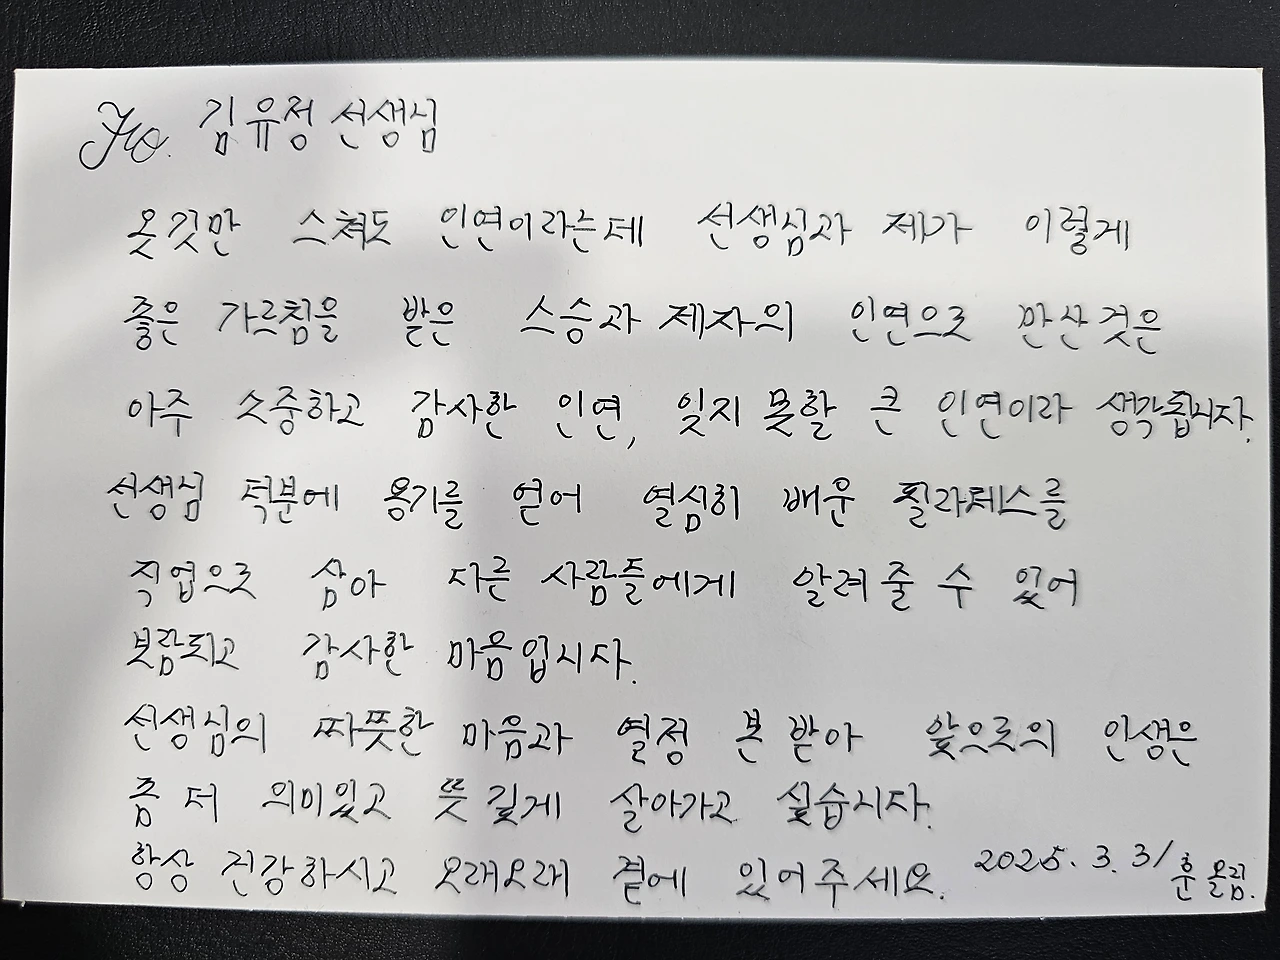 To. 김유정 선생님
옷깃만 스쳐도 인연이라는데 선생님과 제가 이렇게
좋은 가르침을 받은 스승과 제자의 인연으로 만난것은
아주 소중하고 감사한 인연, 잊지 못할 큰 인연이라 생각됩니다.
선생님 덕분에 용기를 얻어 열심히 배운 필라테스를
직업으로 삼아 다른 사람들에게 알려줄 수 있어
보람되고 감사한 마음입니다.
선생님의 따뜻한 마음과 열정 본 받아 앞으로의 인생은
좀 더 의미있고 뜻 깊게 살아가고 싶습니다.
항상 건강하시고 오래오래 곁에 있어주세요. 2025. 3. 31 올림.